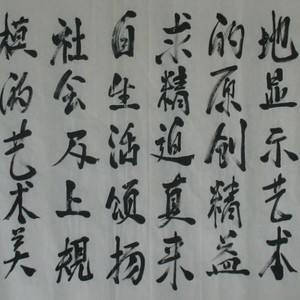 地显示艺术
的原创精益
求精迫真来
自生活颂扬
社会及上规
模的艺术美